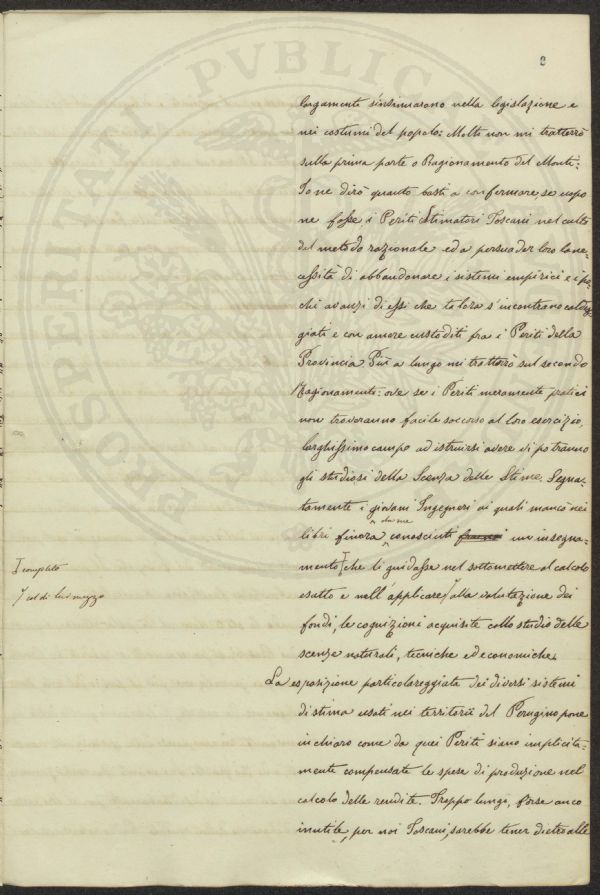 PROSPERITATI PVBLICAE
largamente s'insinuarono nella legislazione e
nei costumi del popolo: Molto non mi tratterrò
sulla prima parte o Ragionamento del Monti:
Io ne dirò quanto basti a confermare, se uopo
ne fosse i Periti Stimatori Toscani nel culto
del metodo razionale ed a persuader loro la ne-
cessità di abbandonare i sistemi empirici e i po-
chi avanzi di essi che talora s'incontrano
giati e con amore custoditi fra i Periti della
Provincia Più a lungo mi tratterrò sul secondo
Ragionamento: ove se i Periti meramente pratici
non troveranno facile soccorso al loro esercizio,
larghissimo campo ad istruirsi avere vi potranno
gli studiosi della Scenza delle Stime. Segna-
tamente i giovani Ingegneri ai quali mancò nei
da me
libri finora conosciuti un insegna-
mento che li guidasse nel sottomettere al calcolo
completo
esatto e nell'applicare alla valutazione dei
col di lui mezzo
fondi, le cognizioni acquisite collo studio delle
scenze naturali, tecniche ed economiche.
La esposizione particolareggiata dei diversi sistemi
di stima usati nei territorii del Perugino pone
in chiaro come da quei Periti siano implicita-
mente compensate le spese di produzione nel
calcolo delle rendite. Troppo lungo, forse anco
inutile, per noi Toscani, sarebbe tener dietro alle